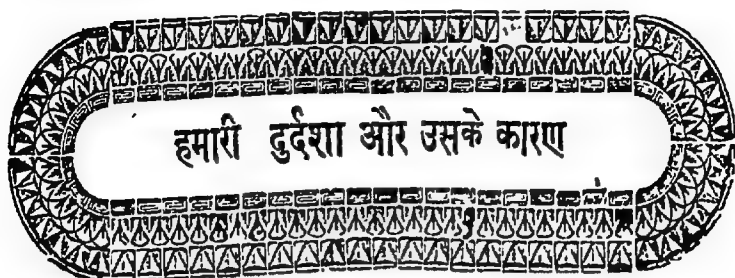 हमारी दुर्दशा और उसके कारण